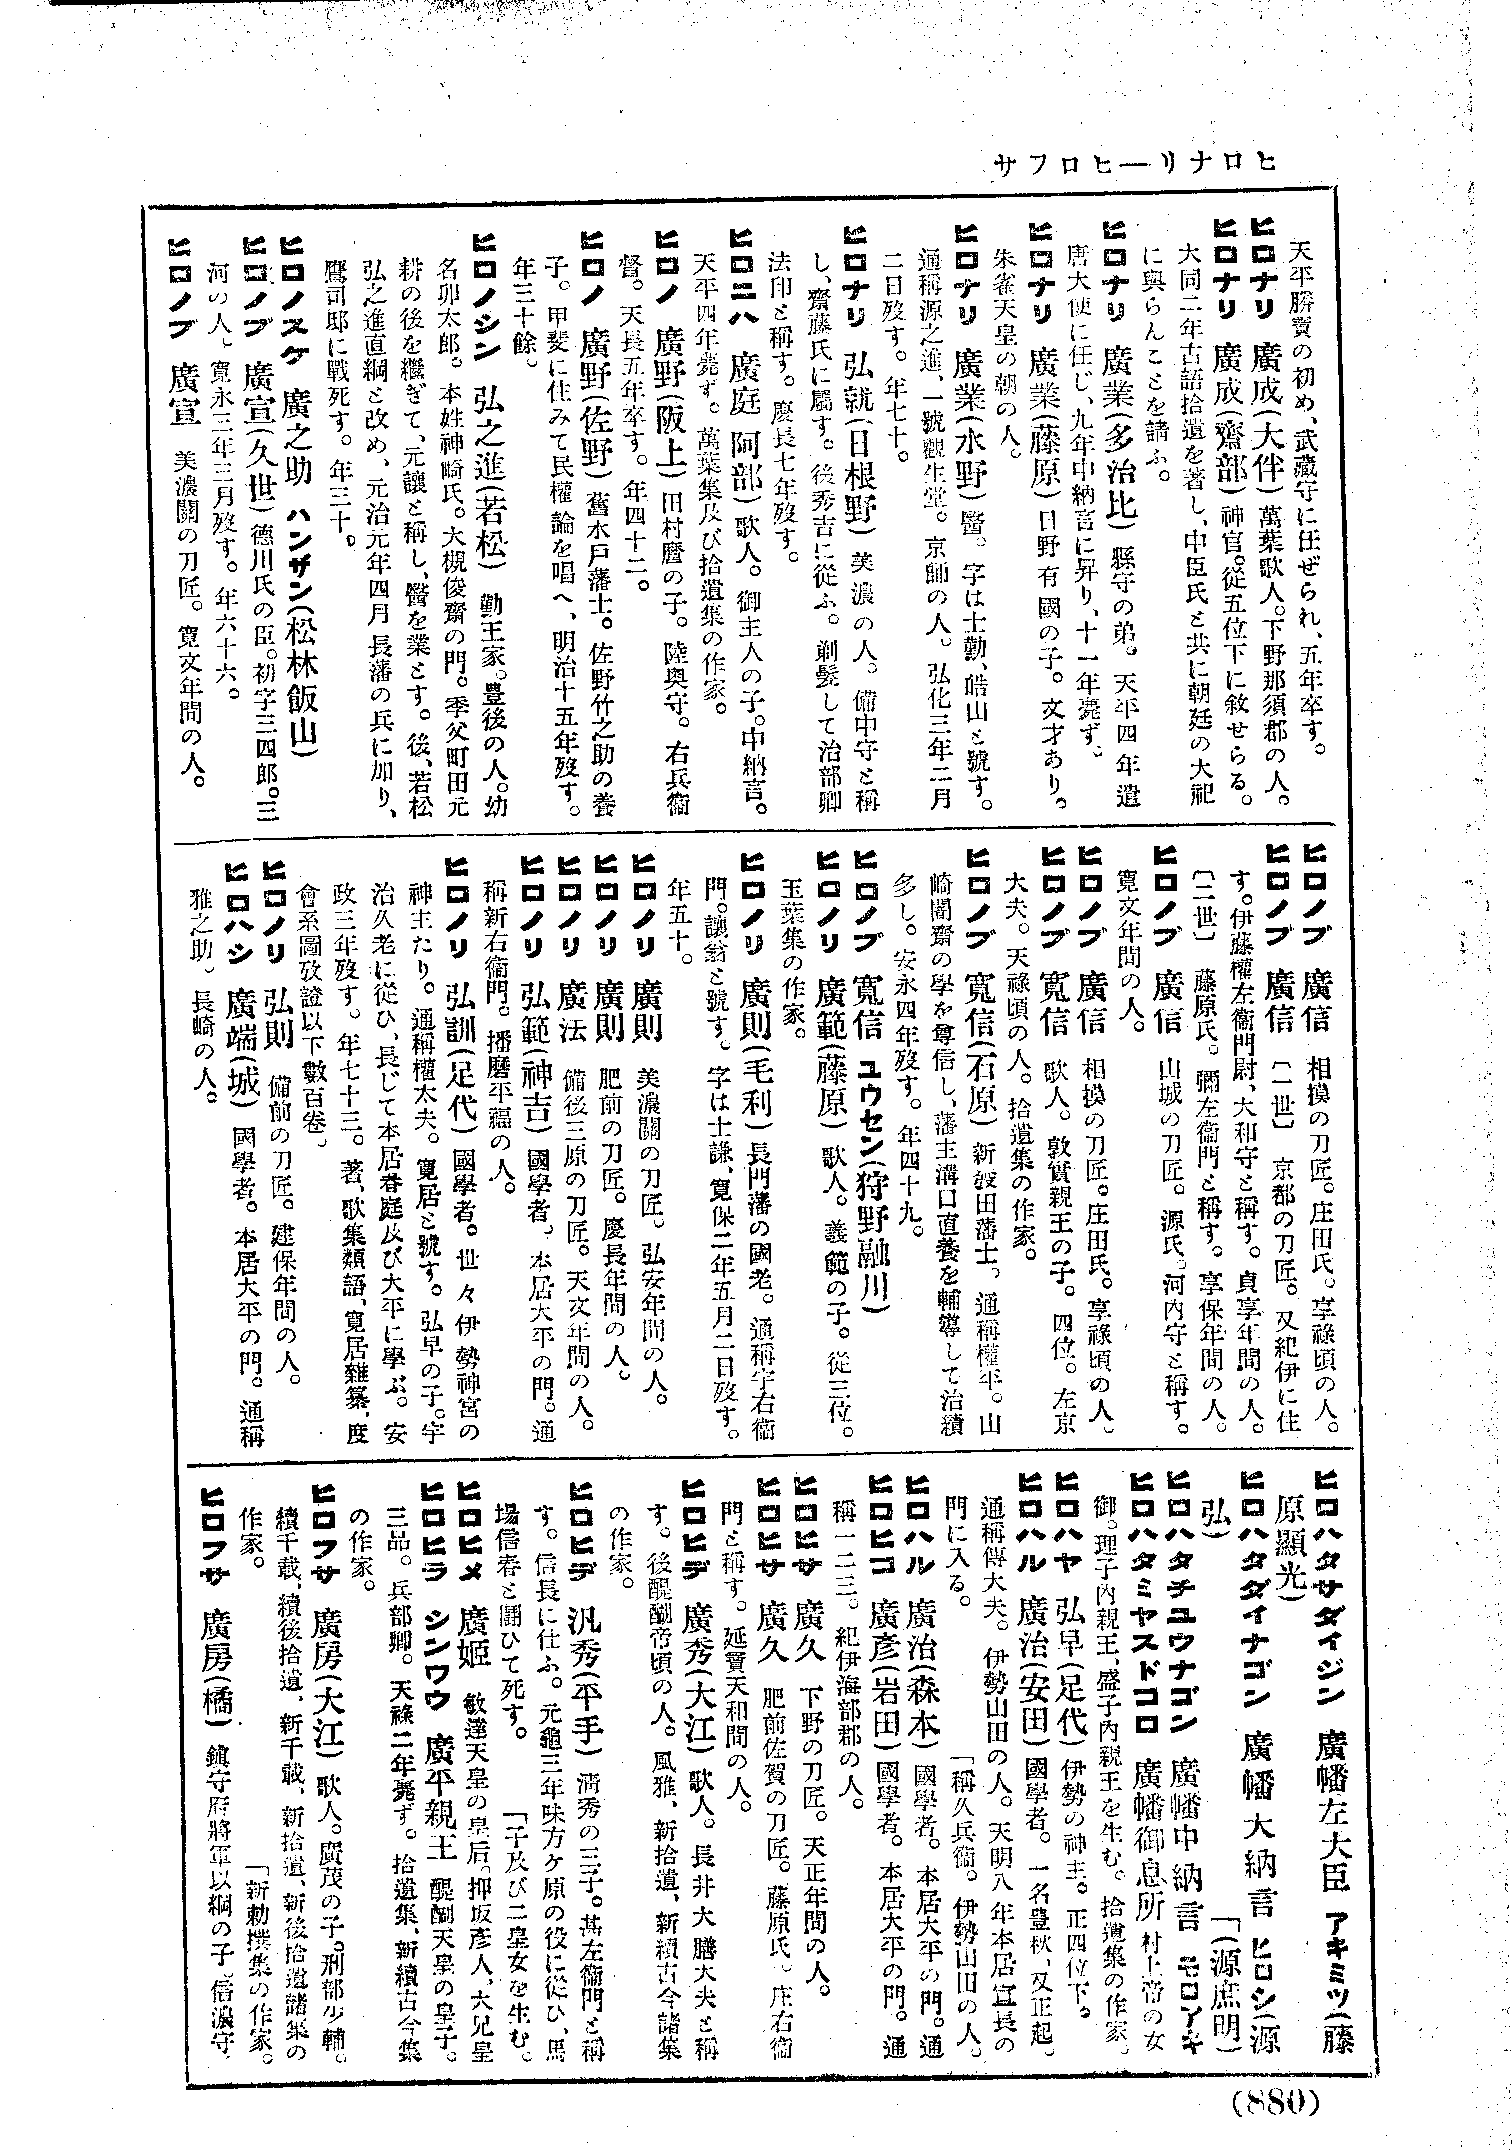 ヒロナリ―ヒロフサ
天平勝寶の初め、武藏守に任ぜられ、五年卒す。
ヒロナリ 廣成(大伴) 萬葉歌人。下野那須郡の人。
ヒロナリ 廣成(齋部) 神官。從五位下に敘せらる。
大同二年古語拾遺を著し、中臣氏と共に朝廷の大祀
に與らんことを請ふ。
ヒロナリ 廣業(多治比) 縣守の弟。天平四年遣
唐大使に任じ、九年中納言に昇り、十一年薨ず。
ヒロナリ 廣業(藤原) 日野有國の子。文才あり。
朱雀天皇の朝の人。
ヒロナリ 廣業(水野) 醫。字は士勤、皓山と號す。
通稱源之進、一號觀生堂。京師の人。弘化三年二月
二日歿す。年七十。
ヒロナリ 弘就(日根野) 美濃の人。備中守と稱
し、齋藤氏に屬す。後秀吉に從ふ。剃髮して治部卿
法印と稱す。慶長七年歿す。
ヒロニハ 廣庭(阿部) 歌人。御主人の子。中納言。
天平四年薨ず。萬葉集及び拾遺集の作家。
ヒロノ 廣野(阪上) 田村麿の子。陸奧守。右兵衞
督。天長五年卒す。年四十二。
ヒロノ 廣野(佐野) 舊水戸藩士。佐野竹之助の養
子。甲斐に住みて民權論を唱へ、明治十五年歿す。
年三十餘。
ヒロノシン 弘之進(若松) 勤王家。豊後の人。幼
名卯太郎。本姓神崎氏。大槻俊齋の門。季父町田元
耕の後を繼ぎて、元讓と稱し、醫を業とす。後、若松
弘之進直綱と改め、元治元年四月長藩の兵に加り、
鷹司邸に戰死す。年三十。
ヒロノスケ 廣之助 ハンザン(松林飯山)
ヒロノブ 廣宣(久世) 德川氏の臣。初字三四郎。三
河の人。寬永三年三月歿す。年六十六。
ヒロノブ 廣宣 美濃關の刀匠。寬文年間の人。
ヒロノブ 廣信 相摸の刀匠。庄田氏。享祿頃の人。
ヒロノブ 廣信 〔一世〕 京都の刀匠。又紀伊に住
す。伊藤權左衞門尉、大和守と稱す。貞享年間の人。
〔二世〕 藤原氏。彌左衞門と稱す。享保年間の人。
ヒロノブ 廣信 山城の刀匠。源氏。河內守と稱す。
寬文年間の人。
ヒロノブ 廣信 相摸の刀匠。庄田氏。享祿頃の人。
ヒロノブ 寬信 歌人。敦實親王の子。四位。左京
大夫。天祿頃の人。拾遺集の作家。
ヒロノブ 寬信(石原) 新發田藩士。通稱權平。山
崎闇齋の學を尊信し、藩主溝口直養を輔導して治績
多し。安永四年歿す。年四十九。
ヒロノブ 寬信 ユウセン(狩野融川)
ヒロノリ 廣範(藤原) 歌人。義範の子。從三位。
玉葉集の作家。
ヒロノリ 廣則(毛利) 長門藩の國老。通稱宇右衞
門。讓翁と號す。字は士謙、寬保二年五月二日歿す。
年五十。
ヒロノリ 廣則 美濃關の刀匠。弘安年間の人。
ヒロノリ 廣則 肥前の刀匠。慶長年間の人。
ヒロノリ 廣法 備後三原の刀匠。天文年間の人。
ヒロノリ 弘範(神吉) 國學者。本居大平の門。通
稱新右衞門。播磨平福の人。
ヒロノリ 弘訓(足代) 國學者。世々伊勢神宮の
神主たり。通稱權太夫。寬居と號す。弘早の子。宇
治久老に從ひ、長じて本居春庭及び大平に學ぶ。安
政三年歿す。年七十三。著、歌集類語、寬居雜纂、度
會系圖攷證以下數百卷。
ヒロノリ 弘則 備前の刀匠。建保年間の人。
ヒロハシ 廣端(城) 國學者。本居大平の門。通稱
雅之助。長崎の人。
ヒロハタサダイジン 廣幡左大臣 アキミツ(藤
原顯光)
ヒロハタダイナゴン 廣幡大納言 ヒロシ(源
弘)
ヒロハタチユウナゴン 廣幡中納言 モロアキ
「(源庶明)
ヒロハタミヤスドコロ 廣幡御息所 村上帝の女
御。理子內親王、盛子內親王を生む。拾遺集の作家。
ヒロハヤ 弘早(足代) 伊勢の神主。正四位下。
ヒロハル 廣治(安田) 國學者。一名豊秋、又正起。
通稱傳大夫。伊勢山田の人。天明八年本居宣長の
門に入る。
「稱久兵衞。伊勢山田の人。
ヒロハル 廣治(森本) 國學者。本居大平の門。通
ヒロヒコ 廣彥(岩田) 國學者。本居大平の門。通
稱一二三。紀伊海部郡の人。
ヒロヒサ 廣久 下野の刀匠。天正年間の人。
ヒロヒサ 廣久 肥前佐賀の刀匠。藤原氏。庄右衞
門と稱す。延寶天和間の人。
ヒロヒデ 廣秀(大江) 歌人。長井大膳大夫と稱
す。後醍醐帝頃の人。風雅、新拾遺、新續古今諸集
の作家。
ヒロヒデ 汎秀(平手) 淸秀の三子。甚左衞門と稱
す。信長に仕ふ。元龜三年味方ケ原の役に從ひ、馬
場信春と鬪ひて死す。
「子及び二皇女を生む。
ヒロヒメ 廣姬 敏達天皇の皇后。押坂彥人、大兄皇
ヒロヒラ シンワウ 廣平親王 醍醐天皇の皇子。
三品。兵部卿。天祿二年薨ず。拾遺集、新續古今集
の作家。
ヒロフサ 廣房(大江) 歌人。廣茂の子。刑部少輔。
續千載、續後拾遺、新千載、新拾遺、新後拾遺諸集の
作家。
「新勅撰集の作家。
ヒロフサ 廣房(橘) 鎭守府將軍以綱の子。信濃守。
(880)